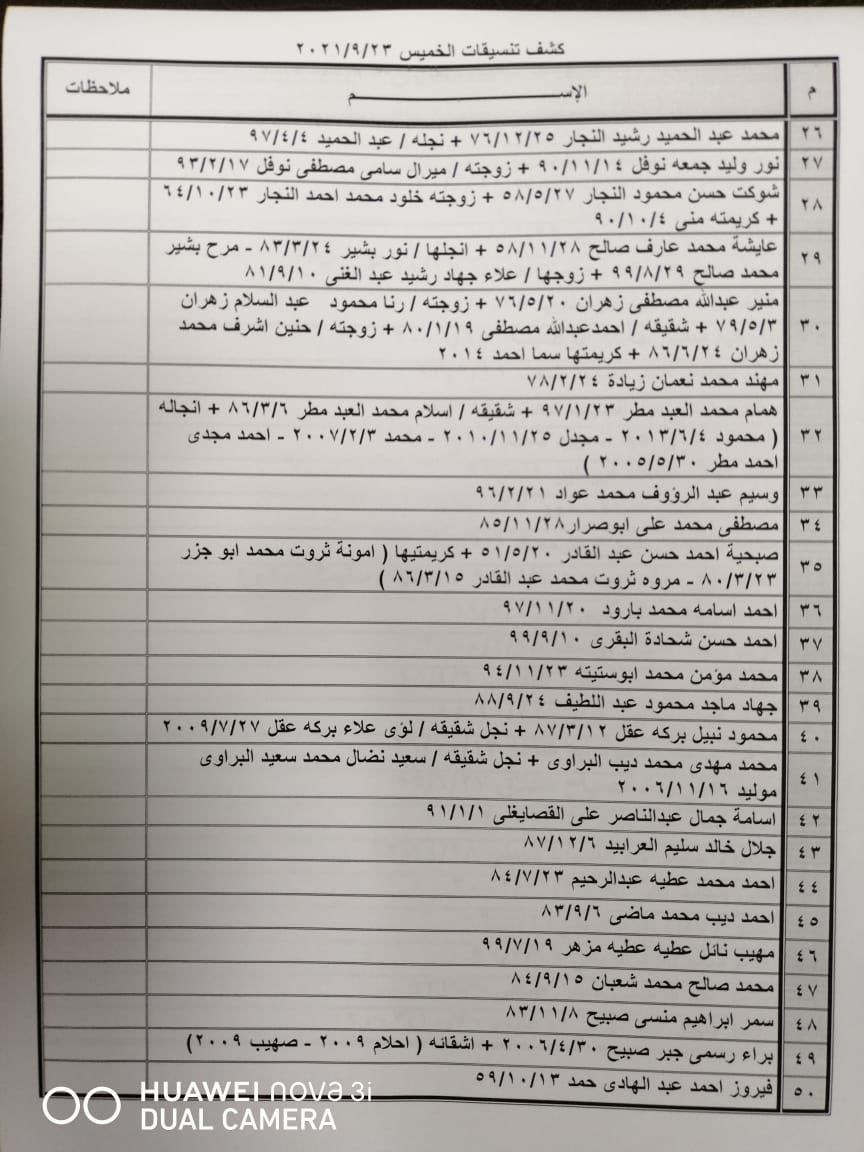 كشف تنسيقات الخميس ٢٠٢١/٩/٢٣
م الإســـــم ملاحظات
٢٦ محمد عبد الحميد رشيد النجار ٧٦/١٢/٢٥ + نجله / عبد الحميد ٩٧/٤/٤
٢٧ نور وليد جمعه نوفل ٩٠/١١/١٤ + زوجته / ميرال سامى مصطفى نوفل ٩٣/٢/١٧
٢٨ شوكت حسن محمود النجار ٥٨/٥/٢٧ + زوجته خلود محمد احمد النجار ٦٤/١٠/٢٣
+ كريمته منى ٩٠/١٠/٤
٢٩ عايشة محمد عارف صالح ٥٨/١١/٢٨ + انجلها / نور بشير ٨٣/٣/٢٤ - مرح بشير
محمد صالح ٩٩/٨/٢٩ + زوجها / علاء جهاد رشيد عبد الغنى ٨١/٩/١٠
٣٠ منير عبدالله مصطفى زهران ٧٦/٥/٢٠ + زوجته / رنا محمود عبد السلام زهران
٧٩/٥/٣ + شقيقه / احمدعبدالله مصطفى ٨٠/١/١٩ + زوجته / حنين اشرف محمد
زهران ٨٦/٦/٢٤ + كريمتها سما احمد ٢٠١٤
٣١ مهند محمد نعمان زيادة ٧٨/٢/٢٤
٣٢ همام محمد العبد مطر ٩٧/١/٢٣ + شقيقه / اسلام محمد العبد مطر ٨٦/٣/٦ + انجاله
( محمود ٢٠١٣/٦/٤ - مجدل ٢٠١٠/١١/٢٥ - محمد ٢٠٠٧/٢/٣ - احمد مجدى
احمد مطر ٢٠٠٥/٥/٣٠ )
٣٣ وسيم عبد الرؤوف محمد عواد ٩٦/٢/٢١
٣٤ مصطفى محمد على ابوصرار٨٥/١١/٢٨
٣٥ صبحية احمد حسن عبد القادر ٥١/٥/٢٠ + كريمتيها ( امونة ثروت محمد ابو جزر
٨٠/٣/٢٣ - مروه ثروت محمد عبد القادر ٨٦/٣/١٥ )
٣٦ احمد اسامه محمد بارود ٩٧/١١/٢٠
٣٧ احمد حسن شحادة البقرى ٩٩/٩/١٠
٣٨ محمد مؤمن محمد ابوستيته ٩٤/١١/٢٣
٣٩ جهاد ماجد محمود عبد اللطيف ٨٨/٩/٢٤
٤٠ محمود نبيل بركه عقل ٨٧/٣/١٢ + نجل شقيقه / لؤى علاء بركه عقل ٢٠٠٩/٧/٢٧
٤١ محمد مهدى محمد ديب البراوى + نجل شقيقه / سعيد نضال محمد سعيد البراوى
موليد ٢٠٠٦/١١/١٦
٤٢ اسامة جمال عبدالناصر على القصايغلى ٩١/١/١
٤٣ جلال خالد سليم العرابيد ٨٧/١٢/٦
٤٤ احمد محمد عطيه عبدالرحيم ٨٤/٧/٢٣
٤٥ احمد ديب محمد ماضى ٨٣/٩/٦
٤٦ مهيب نائل عطيه عطيه مزهر ٩٩/٧/١٩
٤٧ محمد صالح محمد شعبان ٨٤/٩/١٥
٤٨ سمر ابراهيم منسى صبيح ٨٣/١١/٨
٤٩ براء رسمى جبر صبيح ٢٠٠٦/٤/٣٠ + اشقائه ( احلام ٢٠٠٩ - صهيب ٢٠٠٩)
٥٠ فيروز احمد عبد الهادى حمد ٥٩/١٠/١٣
HUAWEI nova 3i
DUAL CAMERA